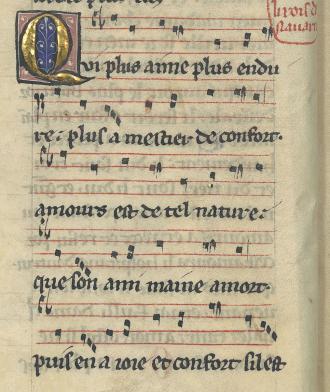 li rois d
nauarr
Qui plus aime plus endu
re. plus a mestier de confort.
amours est de tel nature.
que son ami maine a mort.
puis en a ioie et confort sil est